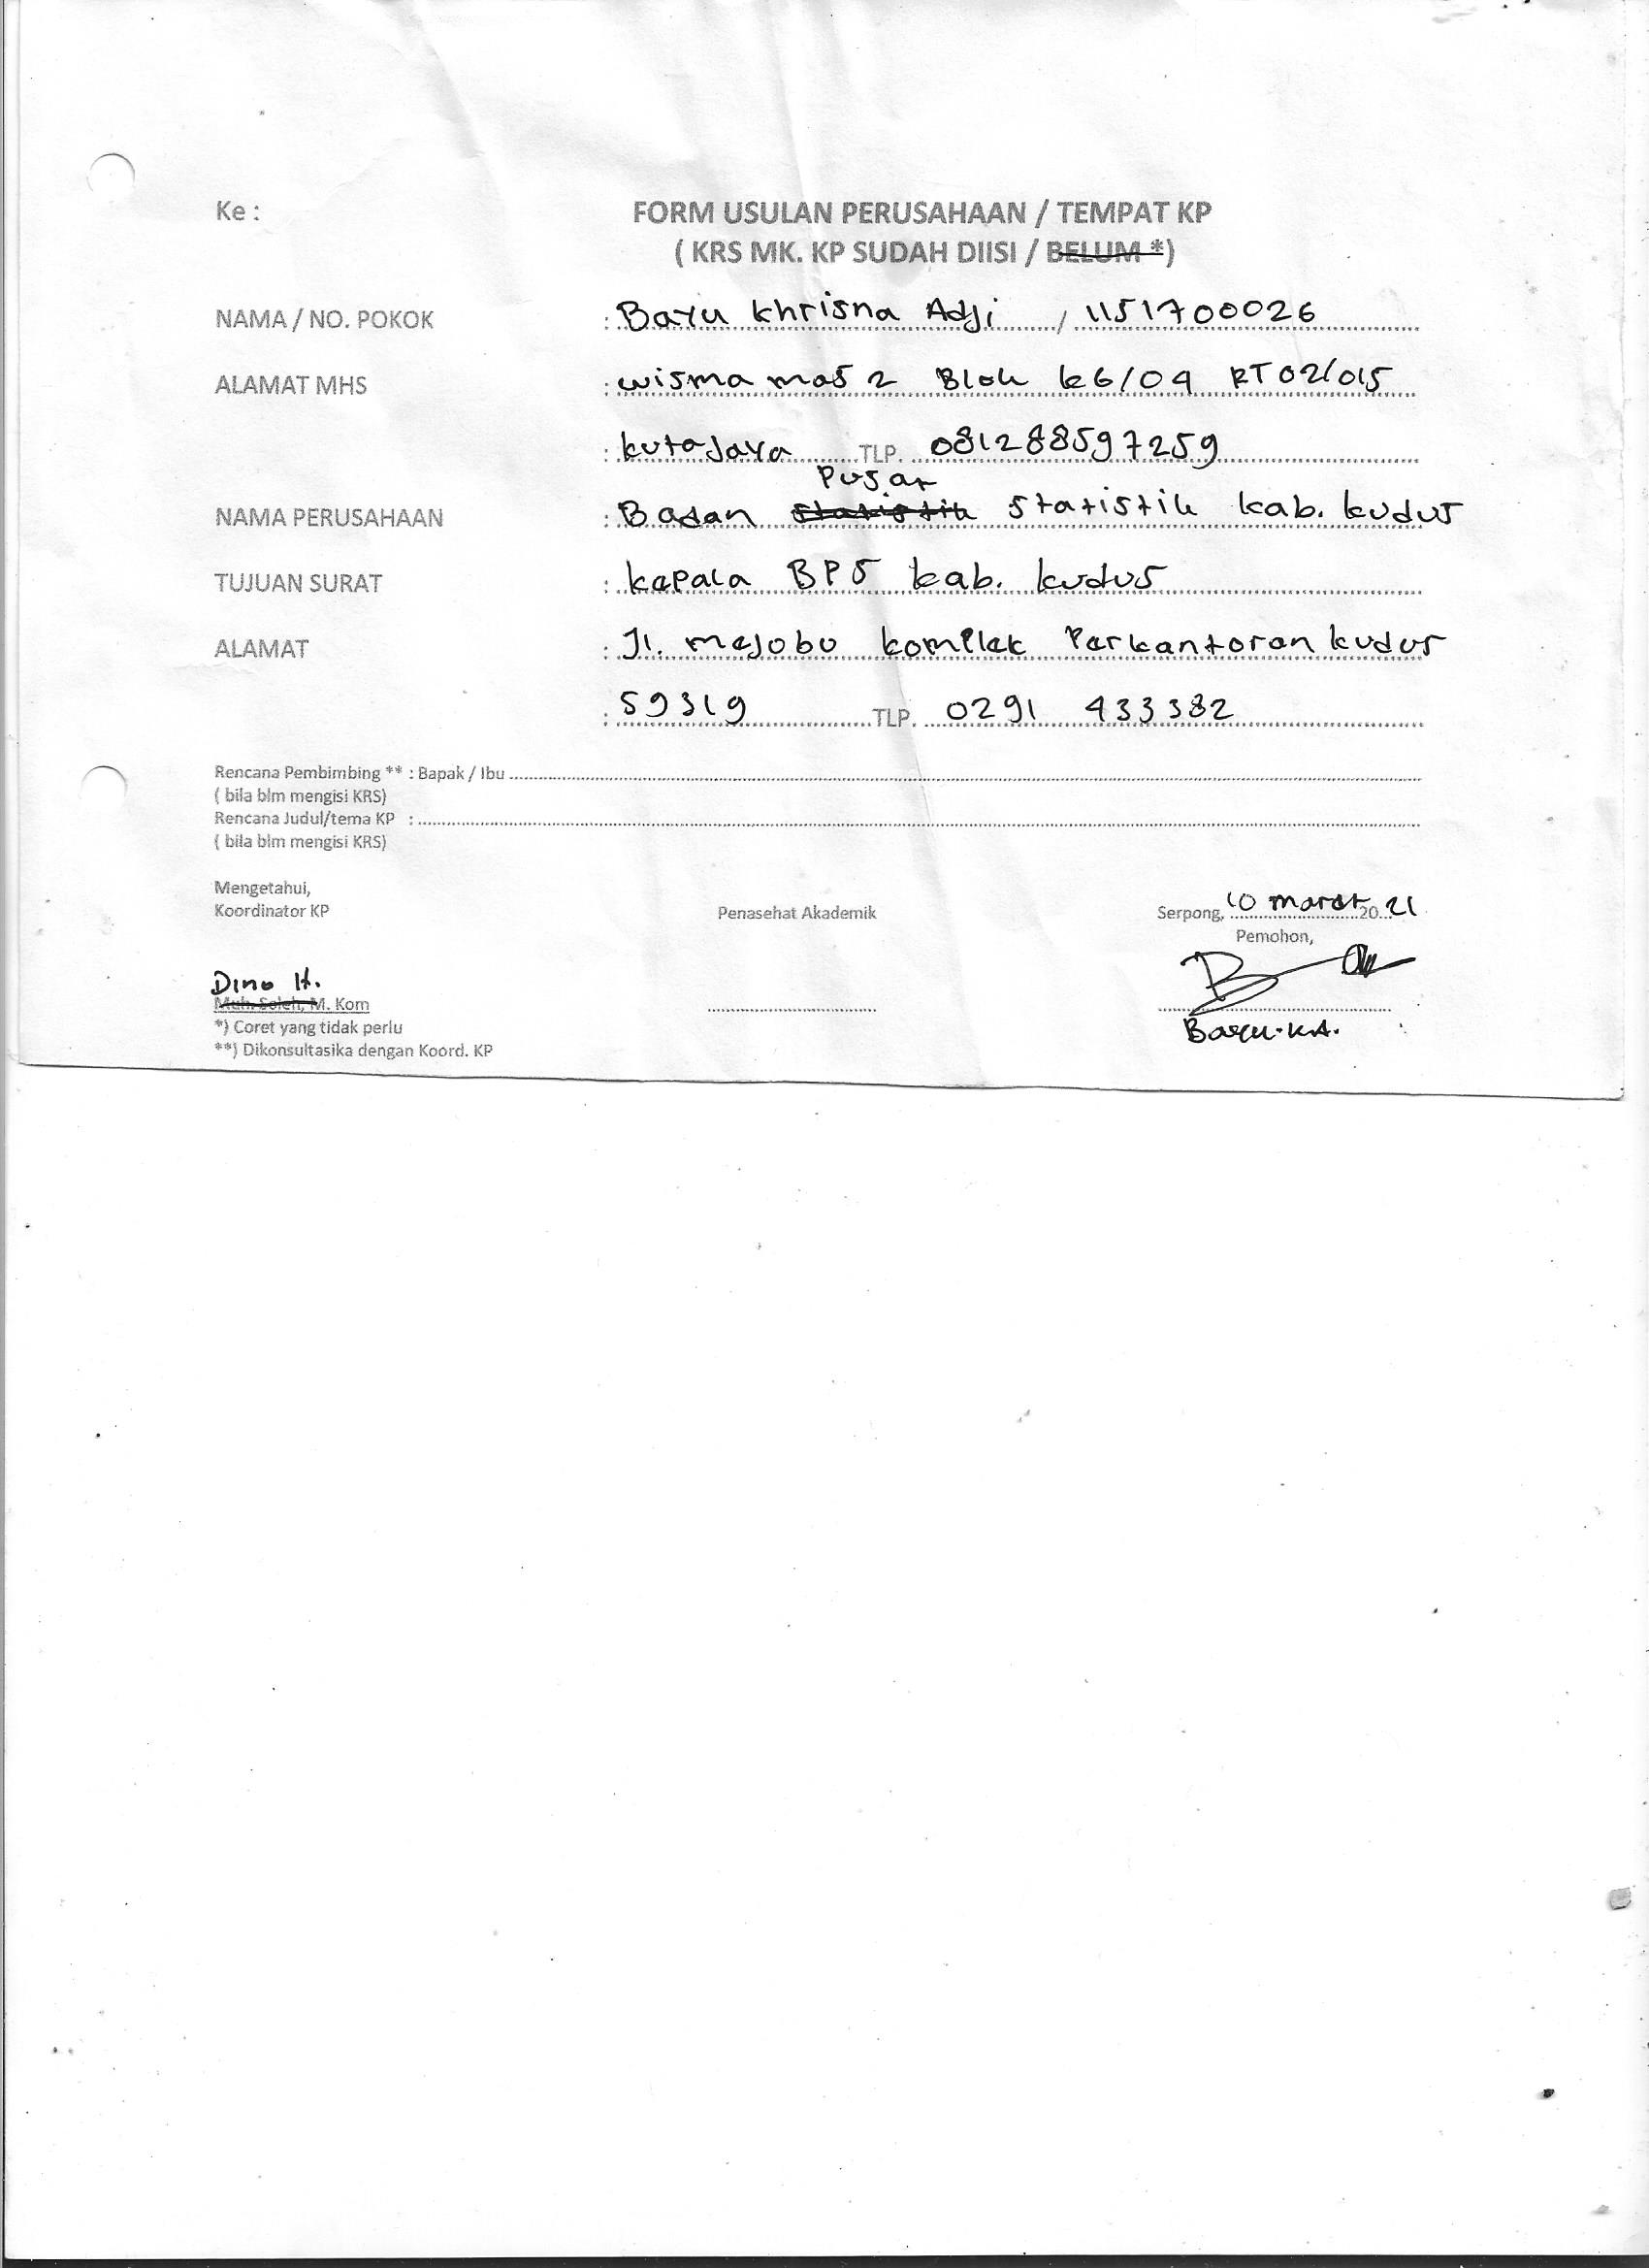 Ke :
FORM USULAN PERUSAHAAN / TEMPAT KP
( KRS MK. KP SUDAH DIISI / BELUM *)
NAMA / NO. POKOK : Bayu Khrisna Adji / 1151700026
ALAMAT MHS : wisma mas 2 Blok k6/09 RT 02/015
: kutaJaya TLP. 081288597259
Pusat
NAMA PERUSAHAAN : Badan Statistik Statistik kab. kudus
TUJUAN SURAT : kepala BPS kab. kudus
ALAMAT : Jl. mejobo komplek Perkantoran kudus
: 59319 TLP. 0291 433382
Rencana Pembimbing ** : Bapak / Ibu
( bila blm mengisi KRS)
Rencana Judul/tema KP :
( bila blm mengisi KRS)
Mengetahui,
Koordinator KP Penasehat Akademik Serpong, 10 maret 20 21
Pemohon,
Dino H.
Muh. Soleh, M. Kom
*) Coret yang tidak perlu Bayu. K.A.
**) Dikonsultasika dengan Koord. KP